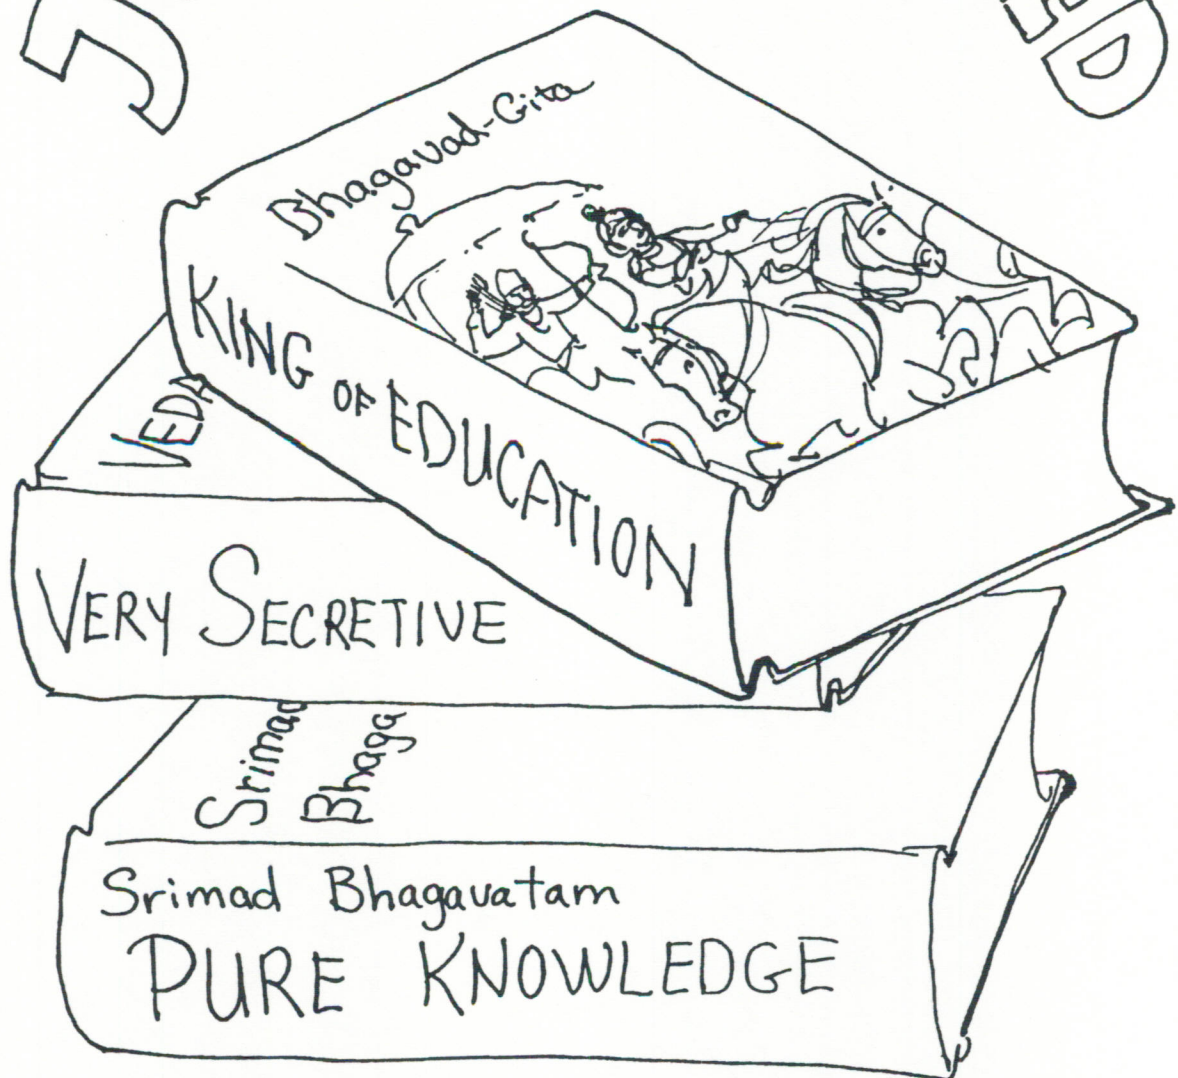 J
ED
Bhagavad-Gita
KING OF EDUCATION
VEDA
VERY SECRETIVE
Srimad
Bhaga
Srimad Bhagavatam
PURE KNOWLEDGE